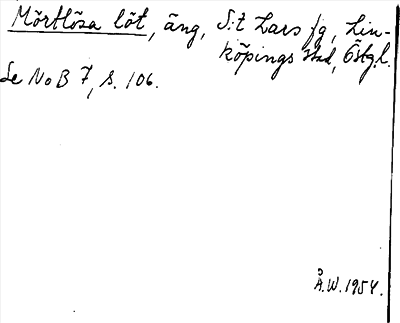 Mörtlösa löt, äng, S:t Lars fg, Lin-
köpings stad, Östgl.
Se NoB 7, s. 106.
Å.W. 1954.